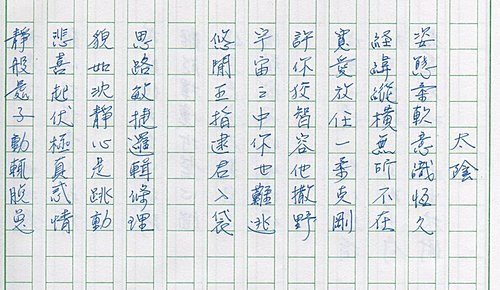 太陰
姿態柔軟意識恆久
經緯縱橫無所不在
寬愛放任一柔克剛
許你智容他撒野
宇宙之中你也難逃
悠閒五指逮君入袋
思路敏捷邏輯條理
貌如沈靜心是跳動
悲喜起伏極真感情
靜般處子動輒脫兔